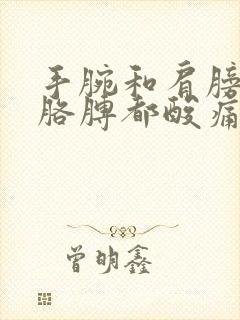 手腕和肩膀
胳膊都酸痛
曾明鑫